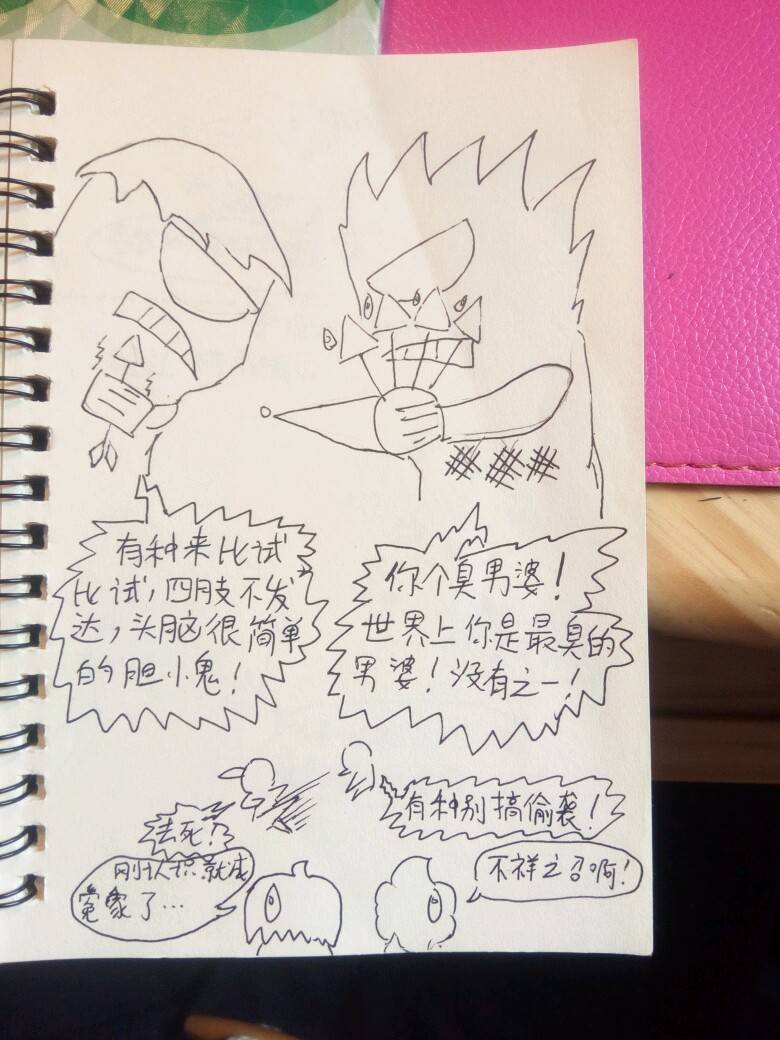 有种来比试
比试，四肢不发
达，头脑很简单
的胆小鬼！
你个臭男婆！
世界上你是最臭的
男婆！没有之一！
有种别搞偷袭！
去死！
刚认识就成
冤家了…
不祥之召啊！